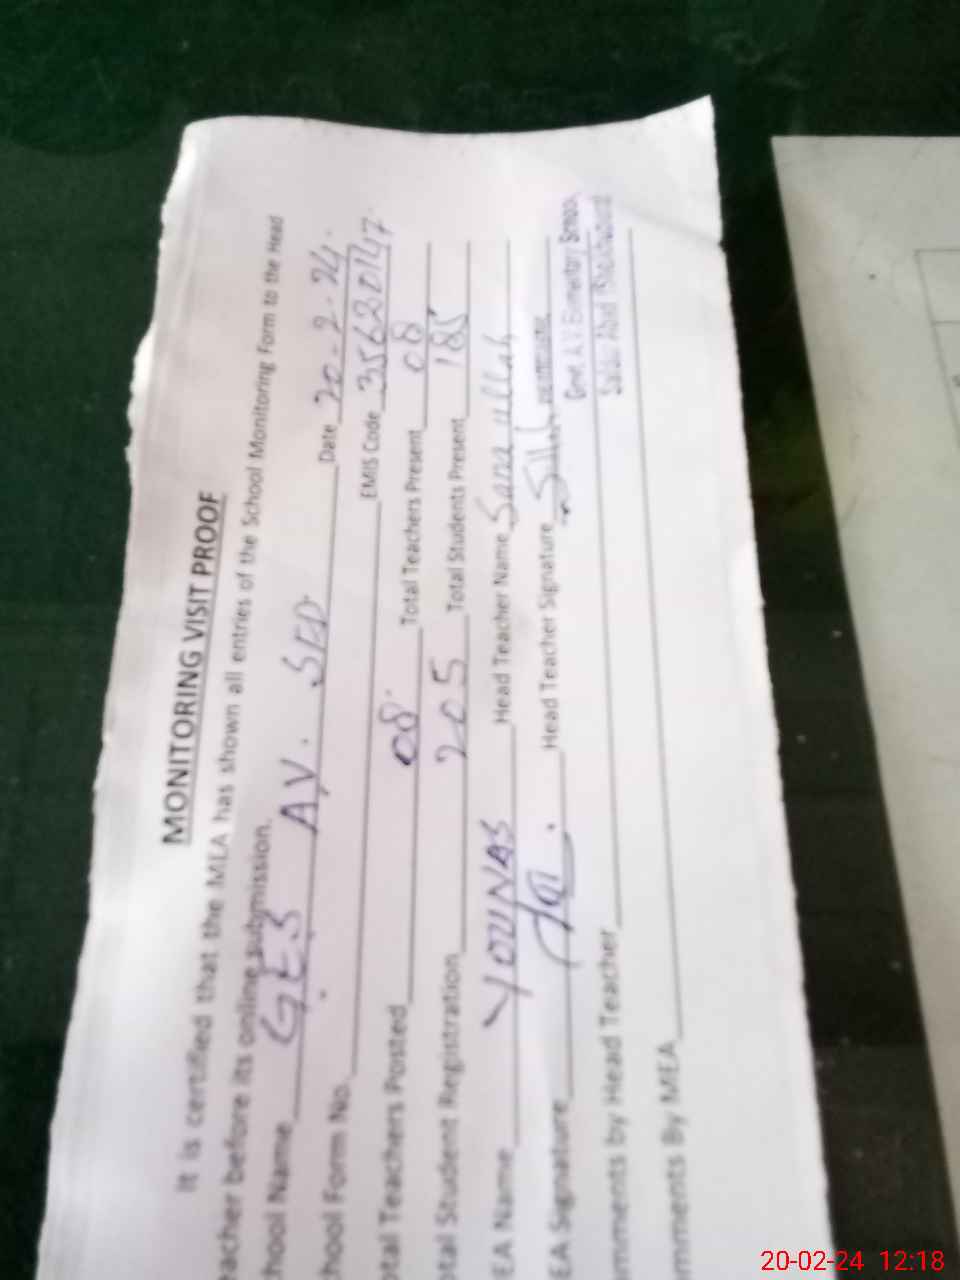 MONITORING VISIT PROOF
It is certified that the MEA has shown all entries of the School Monitoring Form to the Head
eacher before its online submission.
hool Name GES AV. SFD. Date 20-2-24.
hool Form No. EMIS Code 35620147
otal Teachers Posted 08 Total Teachers Present 08
otal Student Registration 205 Total Students Present 185
EA Name YOUNAS Head Teacher Name Sana ullah
EA Signature Head Teacher Signature
Govt. A.V Elementary School
omments by Head Teacher
omments By MEA
20-02-24 12:18